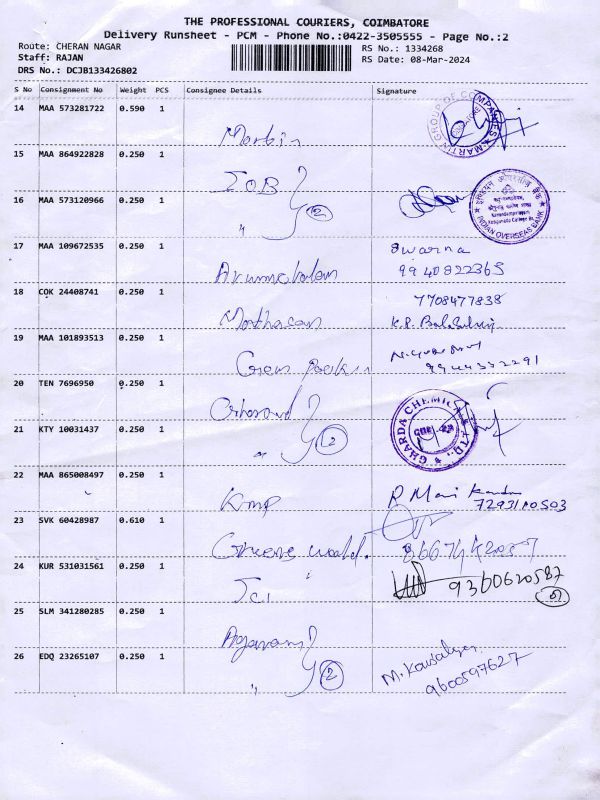 THE PROFESSIONAL COURIERS, COIMBATORE
Delivery Runsheet - PCM - Phone No.:0422-3505555 - Page No.:2
Route: CHERAN NAGAR
RS No.: 1334268
Staff: RAJAN
RS Date: 08-Mar-2024
DRS No.: DCJB133426802
S No Consignment No Weight PCS Consignee Details Signature
14 MAA 573281722 0.590 1
Martin
MARTIN GROUP OF COMPANIES
15 MAA 864922828 0.250 1
IOB
16 MAA 573120966 0.250 1
" 2
INDIAN OVERSEAS BANK
17 MAA 109672535 0.250 1
Swarna
9940822365
18 COK 24408741 0.250 1
7708477838
19 MAA 101893513 0.250 1
Green
20 TEN 7696950 0.250 1
21 KTY 10031437 0.250 1
2
GHARDA CHEMICALS LTD.
22 MAA 865008497 0.250 1
KMP
R Mani
23 SVK 60428987 0.610 1
24 KUR 531031561 0.250 1
9360620587
25 SLM 341280285 0.250 1
26 EDQ 23265107 0.250 1
" 2
M. Kowsalya
9600597627